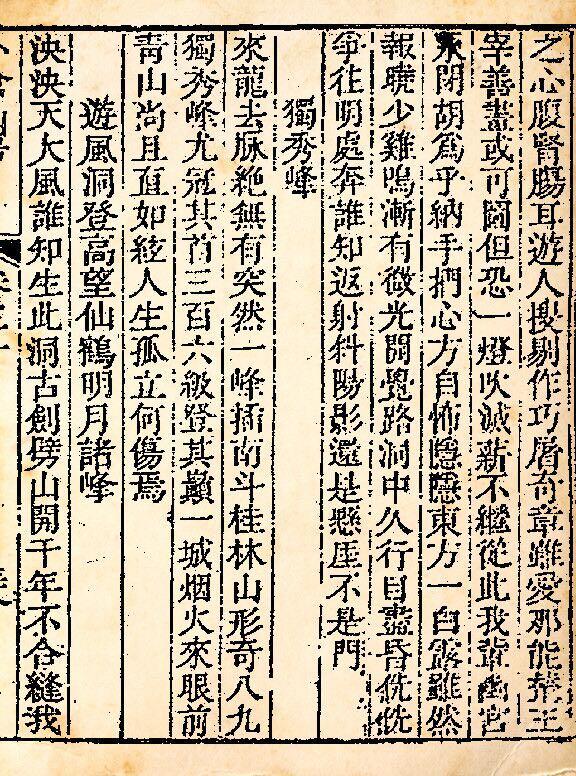 之心腹腎腸耳遊人搜剔作巧屠奇章雖愛那能輦王
宰善畫或可圖但恐一燈吹滅新不繼從此我輩幽宮
永閉胡爲乎納手捫心方自怖隱隱東方一白露雖然
報曉少雞鳴漸有微光開覺路洞中久行目盡昏恍恍
爭往明處奔誰知返射斜陽影還是懸厓不是門
獨秀峰
來龍去脉絶無有突然一峰插南斗桂林山形奇八九
獨秀峰尤冠其首三百六級登其巔一城烟火來眼前
青山尚且直如絃人生孤立何傷焉
遊風洞登高望仙鶴明月諸峰
泱泱天大風誰知生此洞古劍劈山開千年不合縫我